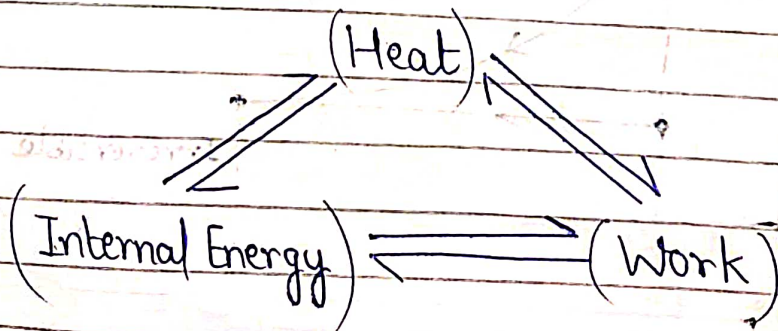 (Heat)
(Internal Energy) (Work)